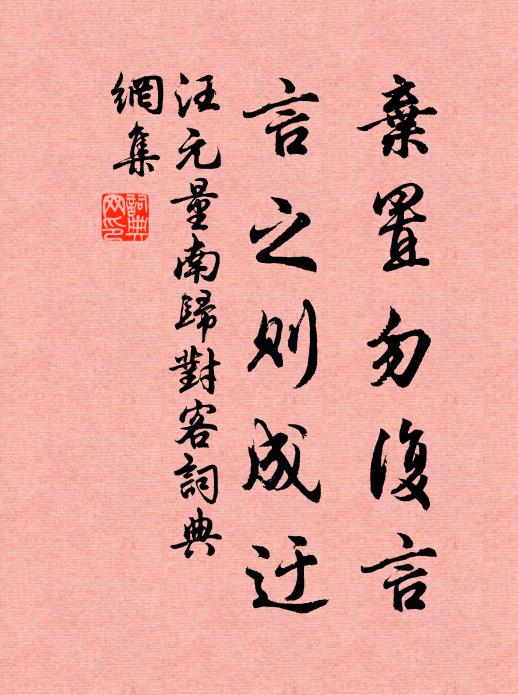 棄置勿復言
言之則成迂
汪元量南歸對客詞典
網集
詞典
网印